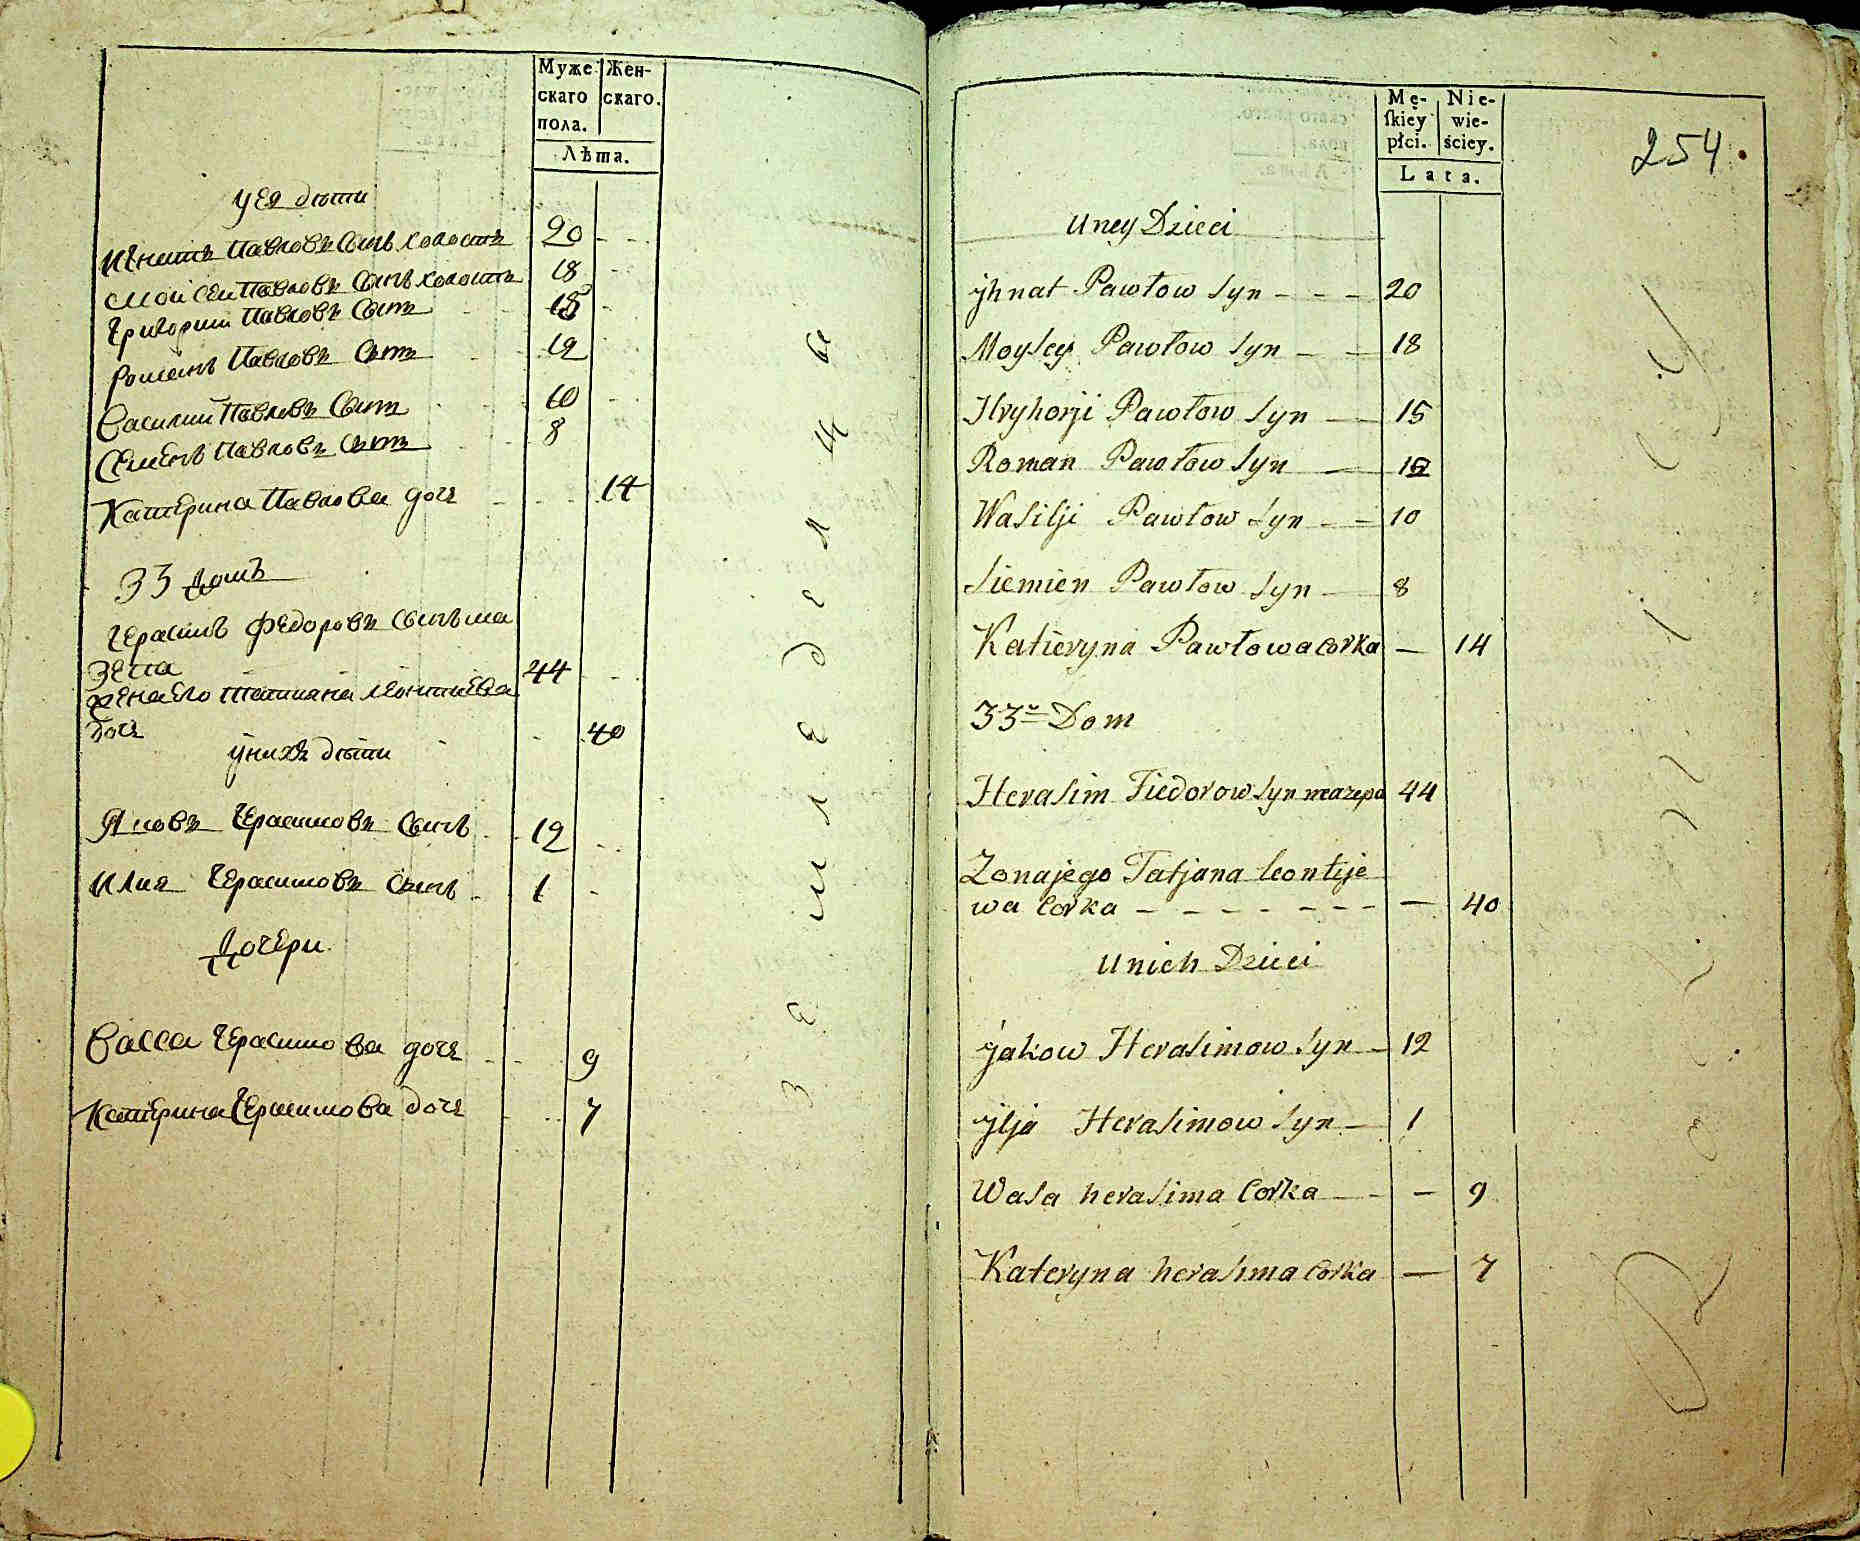 Муже- Жен-
скаго скаго.
пола.
Лѣта.
у Ея дѣти
Игнатъ Павловъ Сынъ холостъ 20
Моисей Павловъ Сынъ холостъ 18
Григории Павловъ Сынъ 15
Романъ Павловъ Сынъ 12
Василии Павловъ Сынъ 10
Семенъ Павловъ Сынъ 8
Катерина Павлова дочь 14
33 домъ
Герасимъ Федоровъ Сынъ ма
зепа 44
жена Его Татиана Леонтиева
дочь 40
у нихъ дѣти
Яковъ Герасимовъ Сынъ 12
Илия Герасимовъ Сынъ 1
Дочери
Васса Герасимова дочь 9
Катерина Герасимова дочь 7
Земледелцы
Mę- Nie-
ſkiey wie-
płci. ściey.
Lata.
254.
U ney Dzieci
jhnat Pawłow Syn - - - 20
Moysey Pawłow Syn - - 18
Hryhorji Pawłow Syn — 15
Roman Pawłow Syn — 12
Wasilji Pawłow Syn - - 10
Siemien Pawłow Syn — 8
Katieryna Pawłowa corka — 14
33 Dom
Herasim Fiedorow Syn mazepa 44
Zona jego Tatjana leontije
wa Corka - - - - - - - — 40
U nich Dzieci
jakow Herasimow Syn - 12
jlja Herasimow Syn — 1
Wasa herasima Corka — - — 9
Kateryna herasima Corka — 7